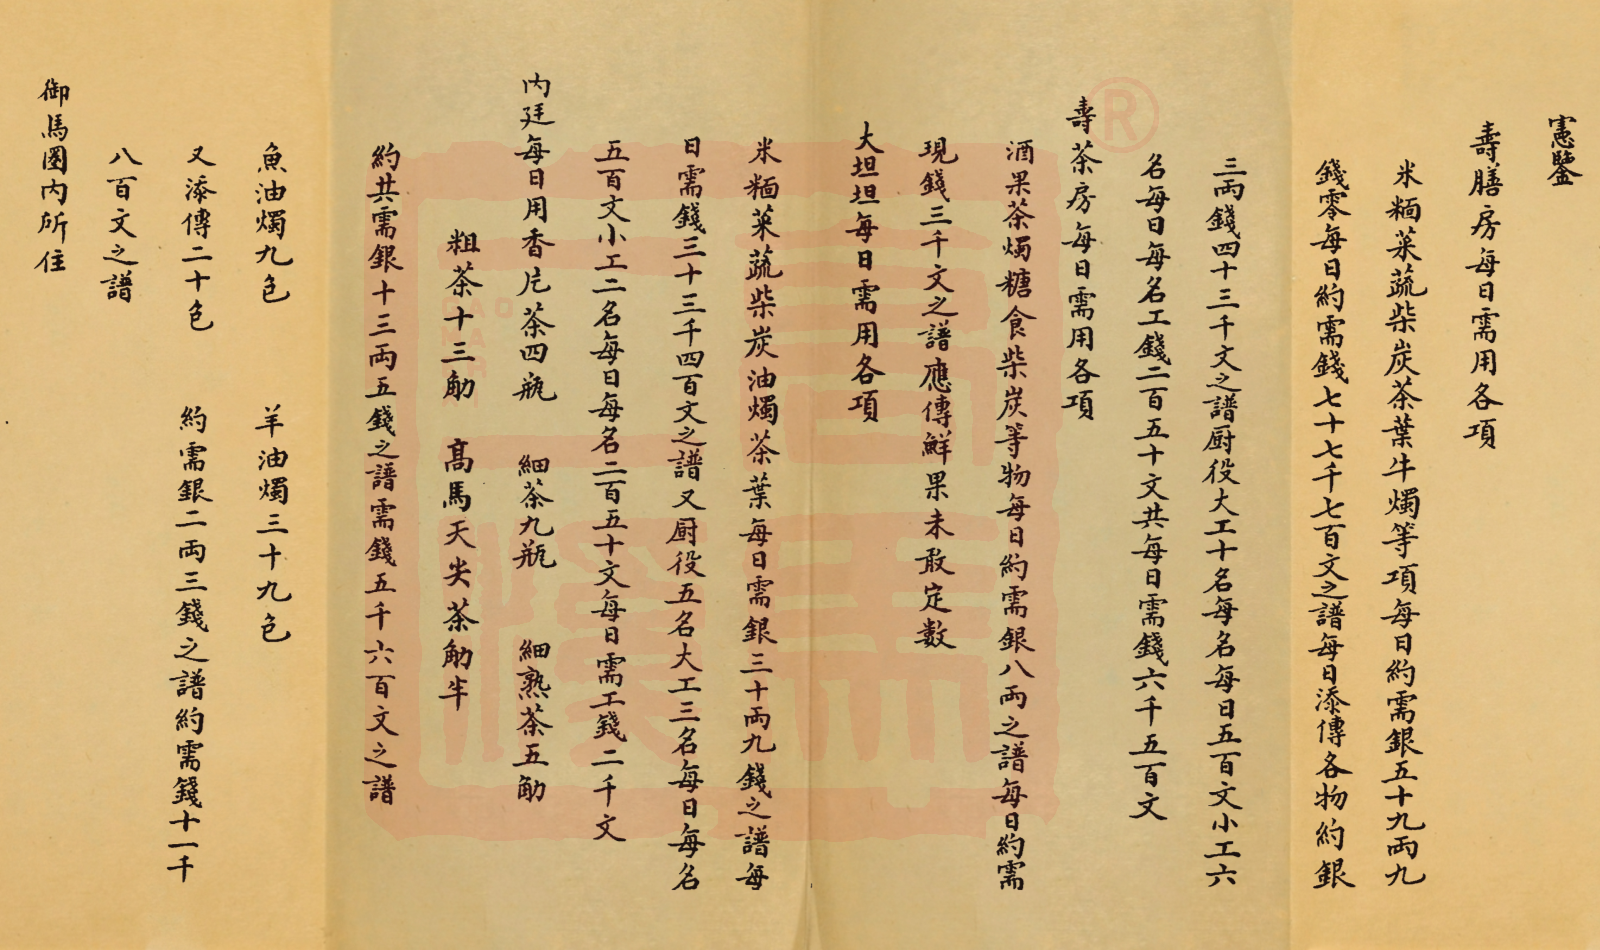 憲鑒
壽膳房每日需用各項
米糆菜蔬柴炭茶葉牛燭等項每日約需銀五十九兩九
錢零每日約需錢七十七千七百文之譜每日添傳各物約銀
三兩錢四十三千文之譜厨役大工十名每名每日五百文小工六
名每日每名工錢二百五十文共每日需錢六千五百文
壽茶房每日需用各項
酒果茶燭糖食柴炭等物每日約需銀八兩之譜每日約需
現錢三千文之譜應傳鮮果未敢定數
大坦坦每日需用各項
米糆菜蔬柴炭油燭茶葉每日需銀三十兩九錢之譜每
日需錢三十三千四百文之譜又厨役五名大工三名每日每名
五百文小工二名每日每名二百五十文每日需工錢二千文
内廷每日用香片茶四瓶 細茶九瓶 細熟茶五觔
粗茶十三觔 高馬天尖茶觔半
約共需銀十三兩五錢之譜需錢五千六百文之譜
魚油燭九色 羊油燭三十九色
又添傳二十色 約需銀二兩三錢之譜約需錢十一千
八百文之譜
御馬圈内所住